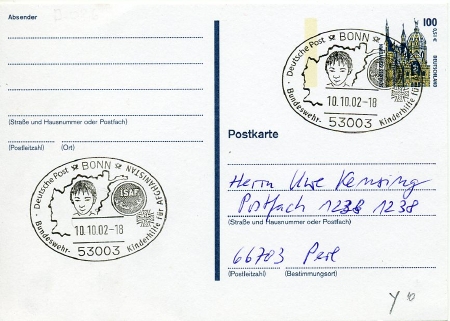 Absender
(Straße und Hausnummer oder Postfach)
(Postleitzahl) (Ort)
Deutsche Post BONN
AFGHANISTAN
ISAF
10.10.02-18
53003
Bundeswehr- Kinderhilfe für
100
0,51 €
DEUTSCHLAND
Deutsche Post BONN
10.10.02-18
53003
Bundeswehr- Kinderhilfe für
Postkarte
Herrn Uwe
Postfach 1238 1238
(Straße und Hausnummer oder Postfach)
66703 Perl
(Postleitzahl) (Bestimmungsort)